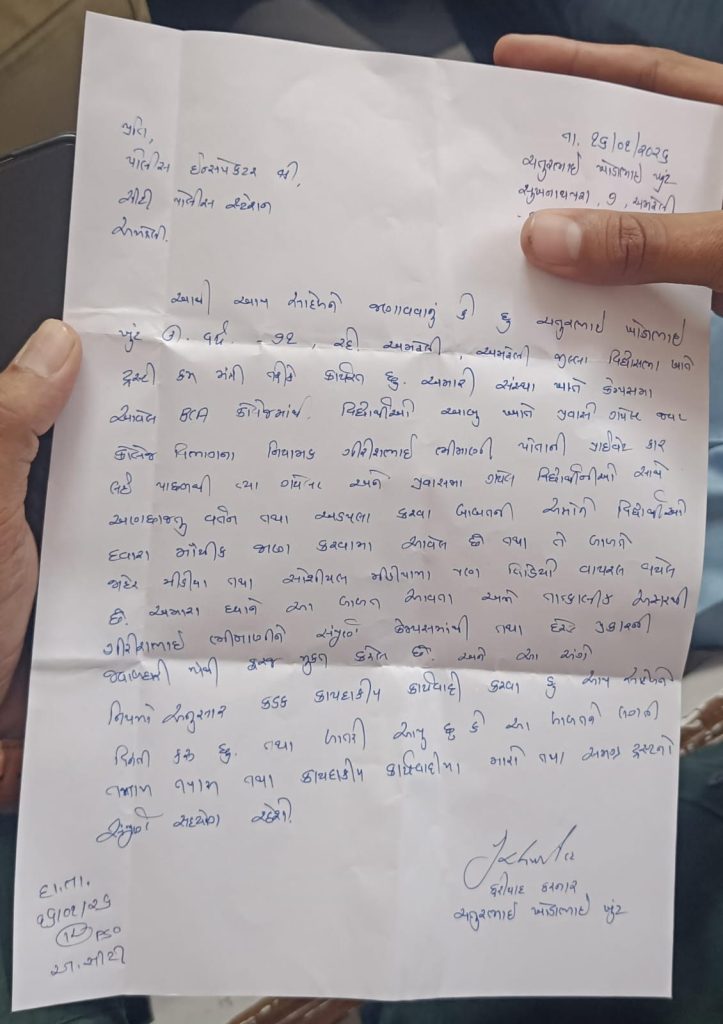 પ્રતિ,
પોલીસ ઇન્સ્પેક્ટર શ્રી,
સીટી પોલીસ સ્ટેશન
અમરેલી.
તા. ૧૬/૦૧/૨૦૨૬
ચતુરભાઇ ખોડાભાઇ ખુંટ
સુખનાથપરા, ૭, અમરેલી
આથી આપ સાહેબને જણાવવાનું કે હું ચતુરભાઇ ખોડાભાઇ
ખુંટ ઉ. વર્ષ - ૭૧, રહે. અમરેલી, અમરેલી જીલ્લા વિદ્યાસભા ખાતે
ટ્રસ્ટી કમ મંત્રી તરીકે કાર્યરત છું. અમારી સંસ્થા ખાતે કેમ્પસમા
આવેલ BCA કોલેજમાંથી વિદ્યાર્થીઓ આબુ ખાતે પ્રવાસે ગયેલ જ્યા
કોલેજ વિભાગના નિયામક ગીરીશભાઇ ભીમાણી પોતાની પ્રાઇવેટ કાર
લઇ પાછળથી ત્યા ગયેલ અને પ્રવાસમા ગયેલ વિદ્યાર્થીનીઓ સાથે
અણછાજતુ વર્તન તથા અડપલા કરવા બાબતની અમોને વિદ્યાર્થીઓ
દ્વારા મૌખીક જાણ કરવામા આવેલ છે તથા તે બાબતે
જાહેર મીડીયા તથા સોશીયલ મીડીયામા પણ વિડિયો વાયરલ થયેલ
છે. અમારા ધ્યાને આ બાબત આવતા અમે તાત્કાલીક અસરથી
ગીરીશભાઇ ભીમાણીને સંપૂર્ણ કેમ્પસમાંથી તથા દરેક પ્રકારની
જવાબદારી માંથી ફરજ મુક્ત કરેલ છે. અને આ અંગે
નિયમો અનુસાર કડક કાયદાકીય કાર્યવાહી કરવા હું આપ સાહેબને
વિનંતી કરૂ છું. તથા ખાતરી આપુ છું કે આ બાબતને લગતી
તમામ તપાસ તથા કાયદાકીય કાર્યવાહીમા મારો તથા સમગ્ર ટ્રસ્ટનો
સંપૂર્ણ સહયોગ રહેશે.
ફરીયાદ કરનાર
ચતુરભાઇ ખોડાભાઇ ખુંટ
હા.તા.
૧૬/૦૧/૨૬
PSO
અ. સીટી